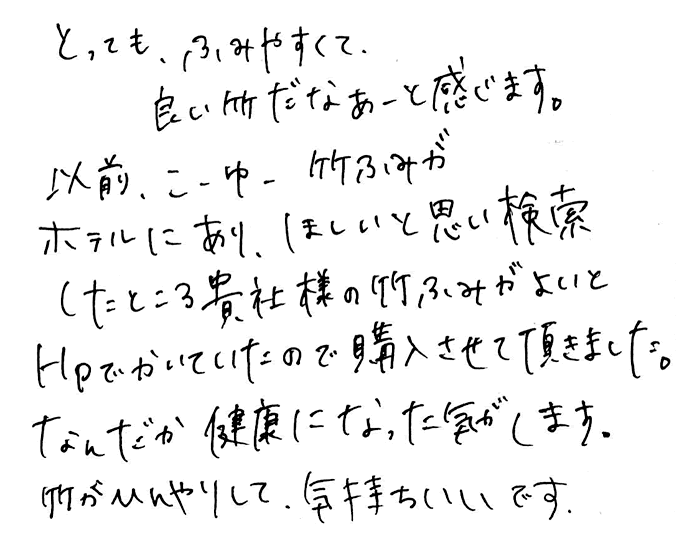 とっても、ふみやすくて、
良い竹だなあーと感じます。
以前、こーゆー竹ふみが
ホテルにあり、ほしいと思い検索
したところ貴社様の竹ふみがよいと
Hpでかいていたので購入させて頂きました。
なんだか健康になった気がします。
竹がひんやりして、気持ちいいです。